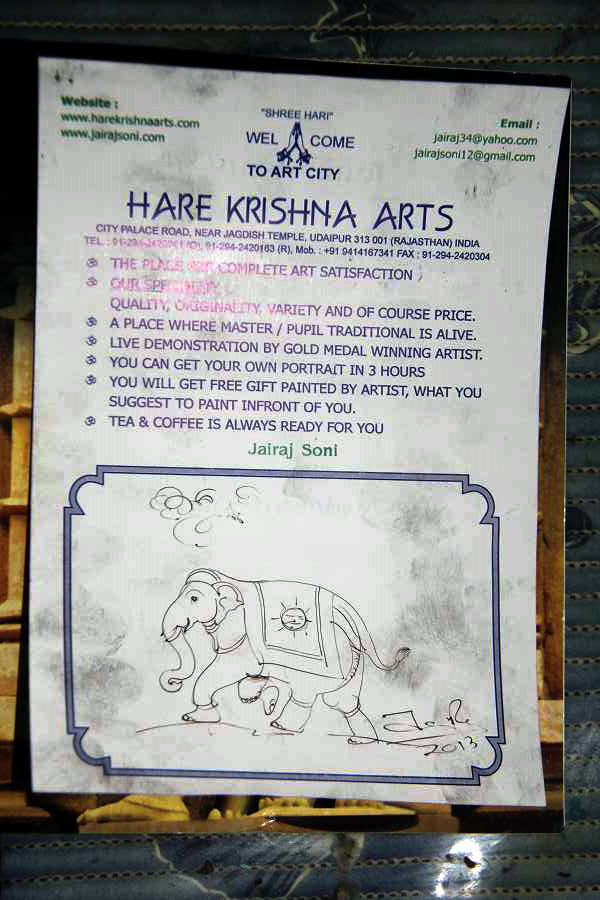 Website :
www.harekrishnaarts.com
www.jairajsoni.com
"SHREE HARI"
WEL COME
TO ART CITY
Email :
jairaj34@yahoo.com
jairajsoni12@gmail.com
HARE KRISHNA ARTS
CITY PALACE ROAD, NEAR JAGDISH TEMPLE, UDAIPUR 313 001 (RAJASTHAN) INDIA
TEL. : (O), 91-294-2420163 (R), Mob. : +91 9414167341 FAX : 91-294-2420304
ॐ THE PLACE FOR COMPLETE ART SATISFACTION
ॐ OUR SPECIALITY
QUALITY, ORIGINALITY, VARIETY AND OF COURSE PRICE.
ॐ A PLACE WHERE MASTER / PUPIL TRADITIONAL IS ALIVE.
ॐ LIVE DEMONSTRATION BY GOLD MEDAL WINNING ARTIST.
ॐ YOU CAN GET YOUR OWN PORTRAIT IN 3 HOURS
ॐ YOU WILL GET FREE GIFT PAINTED BY ARTIST, WHAT YOU
SUGGEST TO PAINT INFRONT OF YOU.
ॐ TEA & COFFEE IS ALWAYS READY FOR YOU
Jairaj Soni
2013